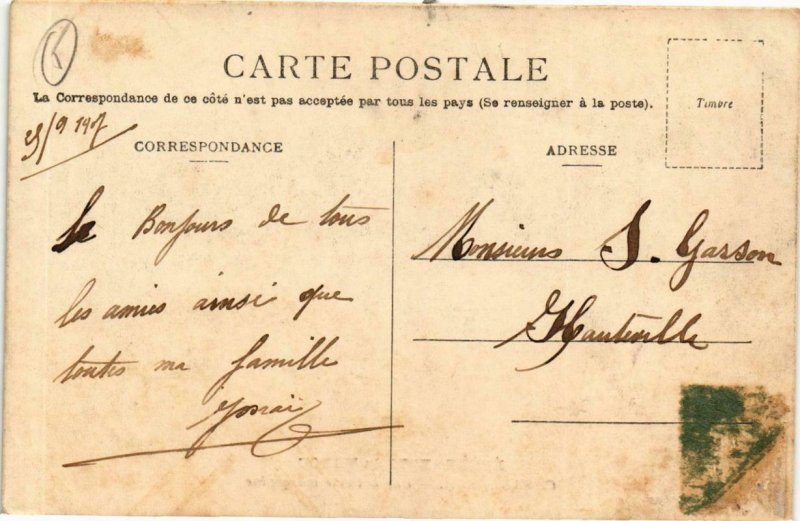 CARTE POSTALE
La Correspondance de ce côté n'est pas acceptée par tous les pays (Se renseigner à la poste).
Timbre
CORRESPONDANCE
ADRESSE
/9 1907
Le Bonjours de tous
les amies ainsi que
toutes ma famille
Monsieurs S. Garson
Hauteville